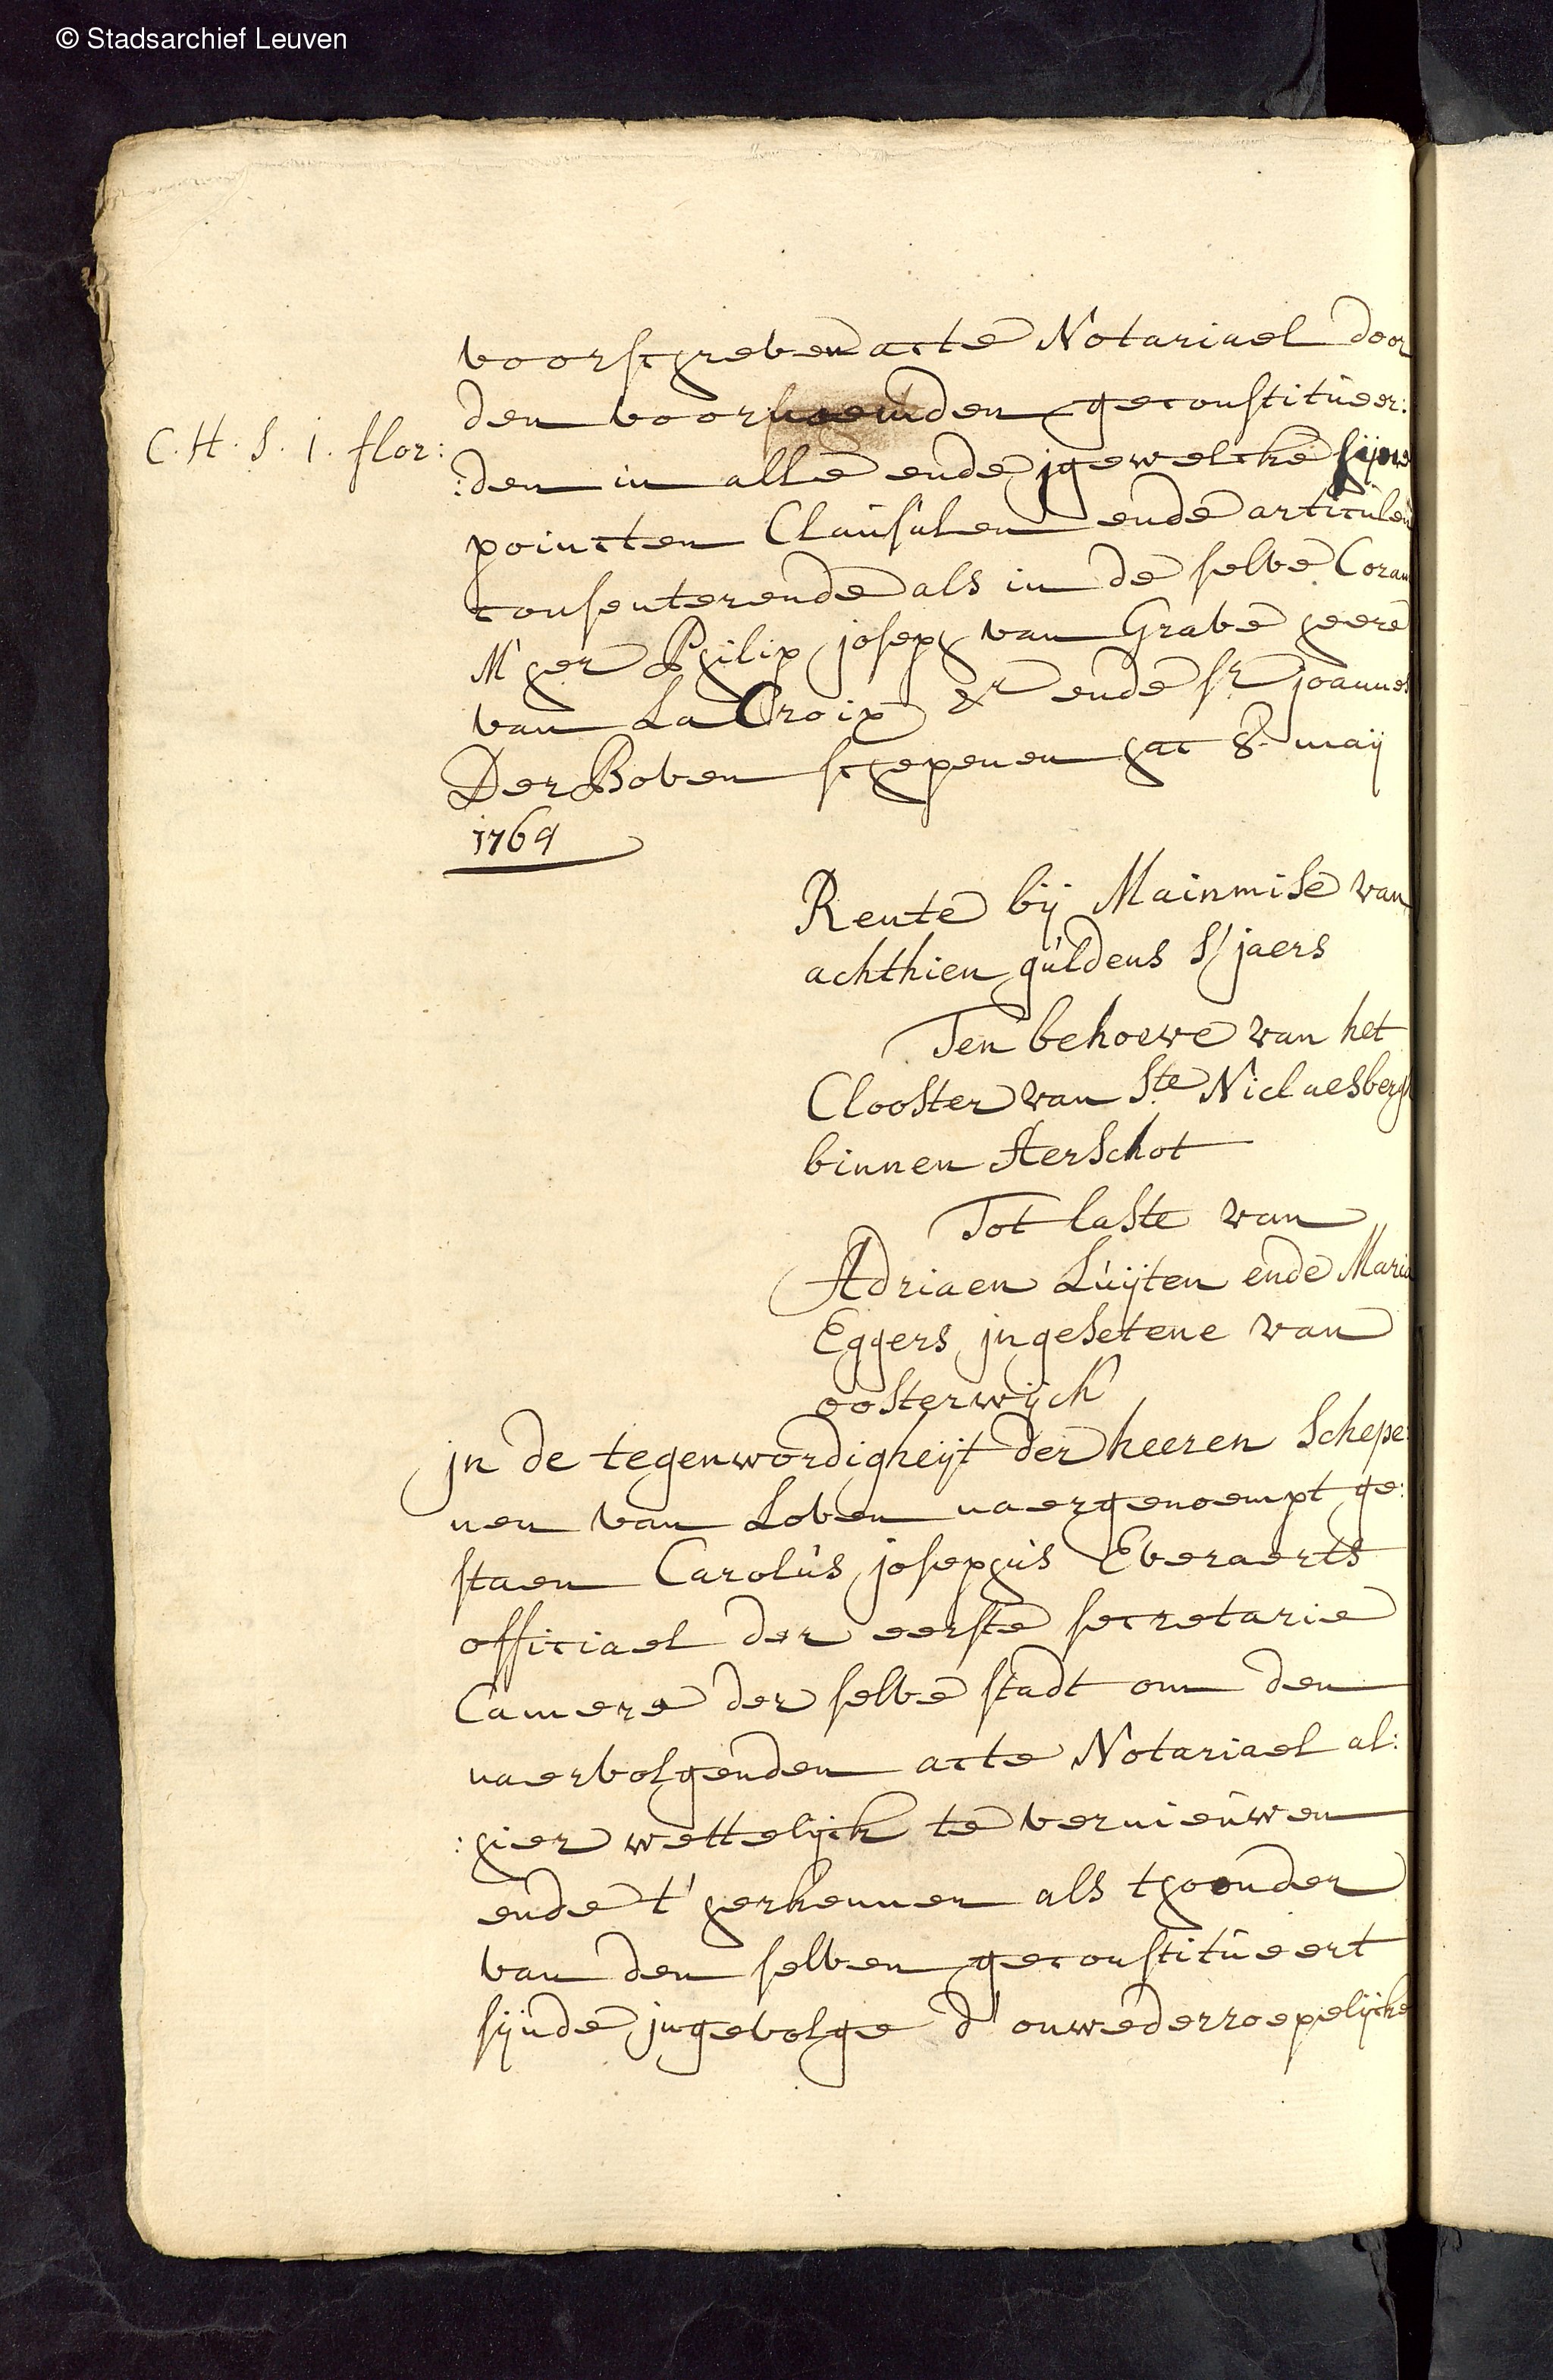 © Stadsarchief Leuven
voorschreven acte Notariael door
den voornoemden geconstitueer:
C.H.S. 1. flor:
:den in alle ende jgewelcke sijne
poincten Clausulen ende articulen
consenterende als in de selve Coram
M'her Philip joseph van Grave heere
van La Croix &r ende sr joannes
Der Boven schepenen hac 8. maij
1769
Rente bij Mainmise van
achthien guldens S'jaers
Ten behoeve van het
Clooster van Ste Niclaesbergh
binnen Aerschot
Tot laste van
Adriaen Luijten ende Maria
Eggers jngesetene van
oosterwijck
jn de tegenwordigheijt der heeren Schepe:
nen van Loven naergenoempt ge:
staen Carolus josephus Everaerts
officiael der eerste secretarie
Camere der selve stadt om den
naervolgenden acte Notariael al:
:hier wettelijck te vernieuwen
ende t'herkennen als thoonder
van den selven geconstitueert
sijnde jngevolge d'onwederroepelijcke